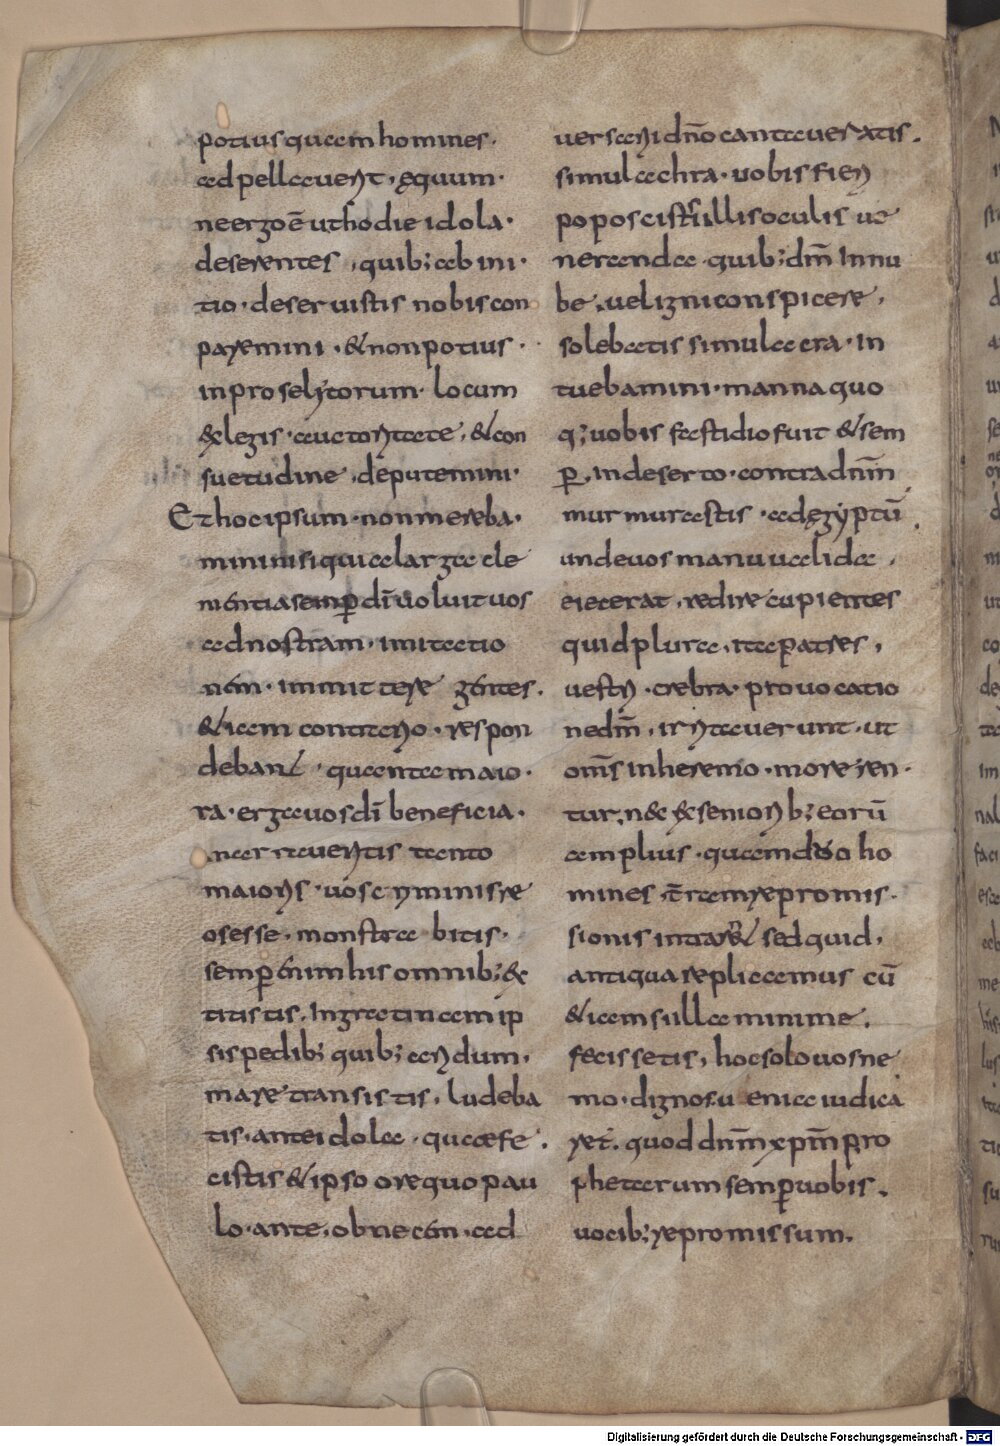 potius quam homines·
ad pellauerit, ęquum·
ne ergo ē ut hodie idola·
deserentes, quib; ab ini·
tio· deseruistis nobis con
paremini, & non potius·
in proselytorum· locum
& legis· auctoritate, & con
suetudine, deputemini·
Et hoc ipsum· non mereba·
mini nisi quia larga cle
mentia semp̄ dī uoluit uos
ad nostram· imitatio
nem· immittere gentes.
& iam contrario· respon
deban& quanta maio·
ra· erga uos dī beneficia·
narraueritis tanto
maioris· uos criminis re
os esse· monstra bitis·
semp̄ enim his omnib; &
titistis. Ingratin am ip
sis pedib; quib; aridum,
mare transistis, ludeba
tis· ante idola· quae fe.
cistis & ipso ore quo pau
lo· ante, ob necem, ad
uersarii dn̄o cantaueratis.
simulachra· uobis fieri
poposcistis illis oculis ue
neranda quib; dm̄ In nu
be, uel igni conspicere,
solebatis simulacra· in
tuebamini· manna quo
q; uobis fastidio fuit & sem
p̄, in deserto· contra dnm̄
murmurastis· ad ęgyptū.
unde uos manu ualida,
eiecerat, redire cupientes
quid plura, ita patres,
uestri· crebra· prouocatio
ne dm̄, irritauerunt· ut
om̄s in heremo· moreren·
tur, n& & seniorib; eorū
amplius· quam duo ho
mines, t̄ram repromis·
sionis intrar& sed quid,
antiqua replicamus cū
& iam si illa minime,
fecissetis, hoc solo uos ne
mo· dignos uenia iudica
ret. quod dnm̄ xpm̄ pro
phetarum semp̄ uobis.
uocib; repromissum.
Digitalisierung gefördert durch die Deutsche Forschungsgemeinschaft - DFG